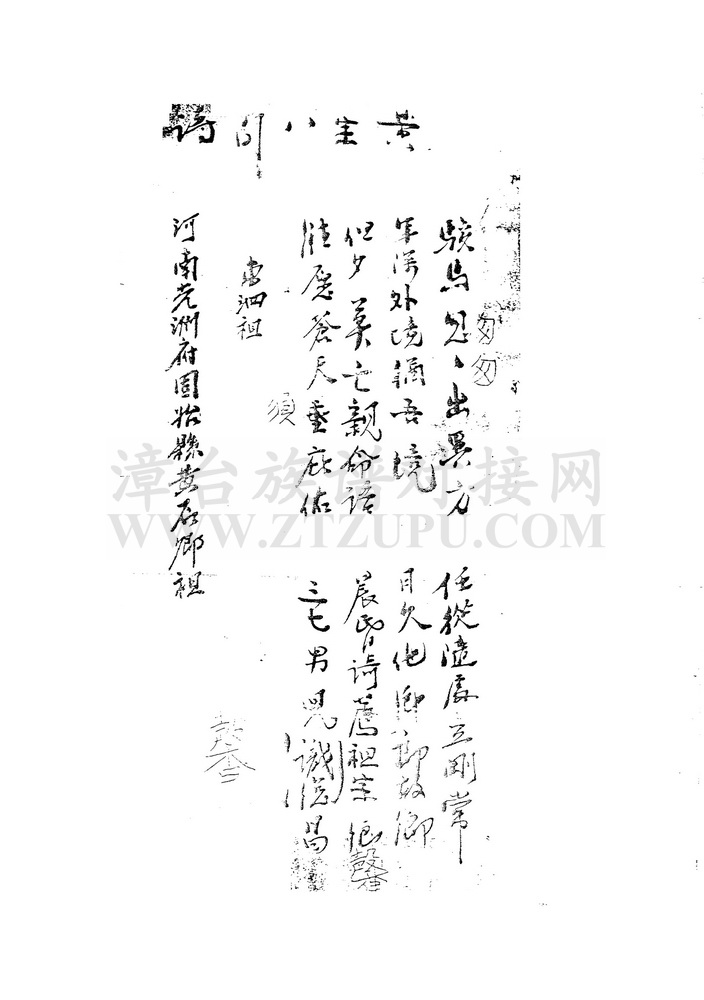 黄宗八郎詩
駿馬匆匆出異方 任從隨處立剛常
年深外境猶吾境 日久他鄉即故鄉
但夕莫亡親命語 晨昏須薦祖宗
匆匆
惟愿蒼天垂庇佑 三七男児識熾昌
須
馨
馨
河南光洲府固始縣黄 鄉祖
漳台族谱对接网
WWW.ZTZUPU.COM